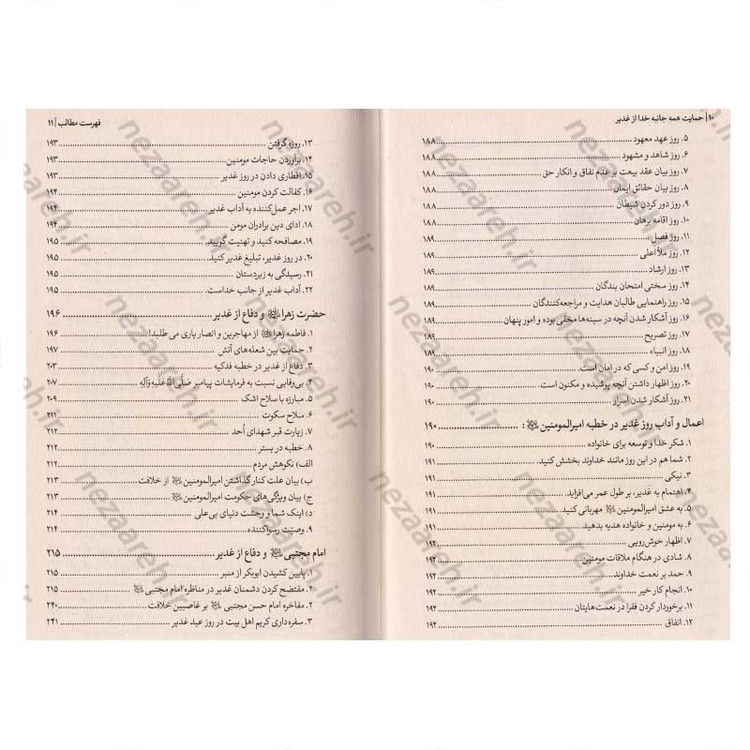 ۱۰ | حمایت همه جانبه خدا از غدیر
۵. روز عهد معهود ۱۸۸
۶. روز شاهد و مشهود ۱۸۸
۷. روز بیان عقد بیعت بر عدم نفاق و انکار حق ۱۸۸
۸. روز بیان حقائق ایمان ۱۸۸
۹. روز دور کردن شیطان ۱۸۸
۱۰. روز اقامه برهان ۱۸۸
۱۱. روز فصل ۱۸۹
۱۲. روز ملأ اعلی ۱۸۹
۱۳. روز ارشاد ۱۸۹
۱۴. روز سختی امتحان بندگان ۱۸۹
۱۵. روز راهنمایی طالبان هدایت و مراجعه‌کنندگان ۱۸۹
۱۶. روز آشکار شدن آنچه در سینه‌ها مخفی بوده و امور پنهان ۱۸۹
۱۷. روز تصریح ۱۸۹
۱۸. روز انبیاء ۱۸۹
۱۹. روز امن و کسی که در امان است. ۱۹۰
۲۰. روز اظهار داشتن آنچه پوشیده و مکنون است. ۱۹۰
۲۱. روز آشکار شدن اسرار ۱۹۰
اعمال و آداب روز غدیر در خطبه امیرالمومنین ﷷ: ۱۹۰
۱. شکر خدا و توسعه برای خانواده ۱۹۰
۲. شما هم در این روز مانند خداوند بخشش کنید. ۱۹۱
۳. نیکی ۱۹۱
۴. اهتمام به غدیر، بر طول عمر می‌افزاید. ۱۹۱
۵. به عشق امیرالمومنین مهربانی کنید. ۱۹۱
۶. به مومنین و خانواده هدیه بدهید. ۱۹۱
۷. اظهار خوش‌رویی ۱۹۱
۸. شادی در هنگام ملاقات مومنین ۱۹۲
۹. حمد بر نعمت خداوند ۱۹۲
۱۰. انجام کار خیر ۱۹۲
۱۱. برخوردار کردن فقرا در نعمت‌هایتان ۱۹۲
۱۲. انفاق ۱۹۲
فهرست مطالب | ۱۱
۱۳. روزه گرفتن ۱۹۳
۱۴. برآوردن حاجات مومنین ۱۹۳
۱۵. افطاری دادن در روز غدیر ۱۹۳
۱۶. کفالت کردن مومنین ۱۹۴
۱۷. اجر عمل‌کننده به آداب غدیر ۱۹۴
۱۸. ادای دین برادران مومن ۱۹۴
۱۹. مصافحه کنید و تهنیت گویید. ۱۹۵
۲۰. در روز غدیر، تبلیغ غدیر کنید. ۱۹۵
۲۱. رسیدگی به زیردستان ۱۹۵
۲۲. آداب غدیر از جانب خداست. ۱۹۵
حضرت زهرا و دفاع از غدیر ۱۹۶
۱. فاطمه زهرا از مهاجرین و انصار یاری می طلبد! ۱۹۶
۲. حمایت بین شعله‌های آتش ۱۹۷
۳. دفاع از غدیر در خطبه فدکیه ۲۰۳
۴. بی‌وفایی نسبت به فرمایشات پیامبر صلی الله علیه وآله ۲۰۷
۵. مبارزه با سلاح اشک ۲۰۹
۶. سلاح سکوت ۲۱۱
۷. زیارت قبر شهدای اُحد ۲۱۲
۸. خطبه در بستر ۲۱۲
الف) نکوهش مردم ۲۱۲
ب) بیان علت کنار گذاشتن امیرالمومنین از خلافت ۲۱۳
ج) بیان ویژگی‌های حکومت امیرالمومنین ۲۱۳
د) اینک شما و وحشت دنیای بی‌علی ۲۱۴
۹. وصیت رسواکننده ۲۱۴
امام مجتبی و دفاع از غدیر ۲۱۵
۱. پایین کشیدن ابوبکر از منبر ۲۱۵
۲. مفتضح کردن دشمنان غدیر در مناظره امام مجتبی ۲۱۵
۲. مفاخره امام حسن مجتبی بر غاصبین خلافت ۲۴۰
۳. سفره‌داری کریم اهل بیت در روز عید غدیر ۲۴۱
nezaareh.ir